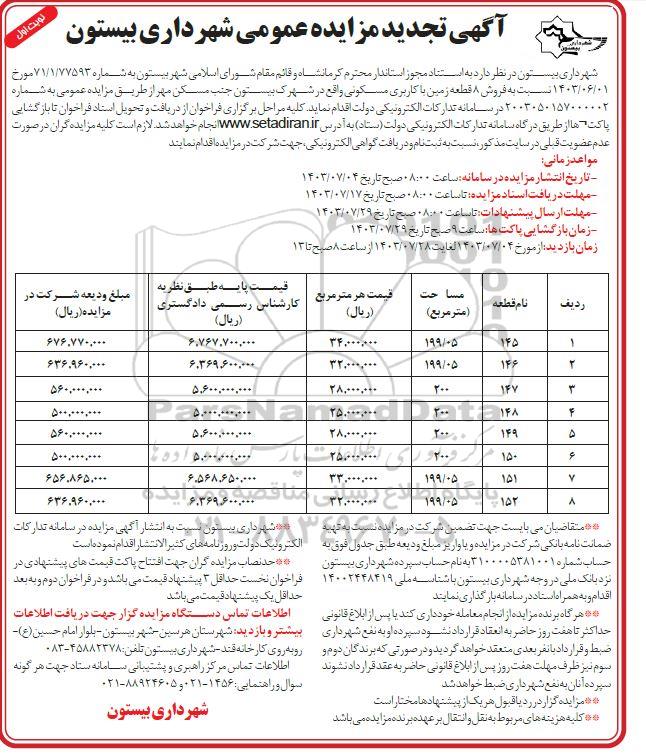 نوبت اول
آگهی تجدید مزایده عمومی شهرداری بیستون
شهرداری بیستون
شهرداری بیستون در نظر دارد به استناد مجوز استاندار محترم کرمانشاه و قائم مقام شورای اسلامی شهر بیستون به شماره ۷۱/۱/۷۷۵۹۳ مورخ
۱۴۰۳/۰۶/۰۱ نسبت به فروش ۸ قطعه زمین با کاربری مسکونی واقع در شهرک بیستون جنب مسکن مهر از طریق مزایده عمومی به شماره
۲۰۰۳۰۵۰۱۵۷۰۰۰۰۰۲ در سامانه تدارکات الکترونیکی دولت اقدام نماید. کلیه مراحل برگزاری فراخوان از دریافت و تحویل اسناد فراخوان تا بازگشایی
پاکت¬ها از طریق درگاه سامانه تدارکات الکترونیکی دولت (ستاد) به آدرس www.setadiran.ir انجام خواهد شد. لازم است کلیه مزایده گران در صورت
عدم عضویت قبلی در سایت مذکور، نسبت به ثبت نام و دریافت گواهی الکترونیکی، جهت شرکت در مزایده اقدام نمایند
مواعد زمانی:
-تاریخ انتشار مزایده در سامانه: ساعت ۰۸:۰۰ صبح تاریخ ۱۴۰۳/۰۷/۰۴
-مهلت دریافت اسناد مزایده: تا ساعت ۰۸:۰۰ صبح تاریخ ۱۴۰۳/۰۷/۱۷
-مهلت ارسال پیشنهادات: تا ساعت ۰۸:۰۰ صبح تاریخ ۱۴۰۳/۰۷/۲۹
-زمان بازگشایی پاکت ها: ساعت ۹ صبح تاریخ ۱۴۰۳/۰۷/۲۹
زمان بازدید: از مورخ ۱۴۰۳/۰۷/۰۴ لغایت ۱۴۰۳/۰۷/۲۸ از ساعت ۸ صبح تا ۱۳
ردیف | نام قطعه | مساحت (مترمربع) | قیمت هر مترمربع (ریال) | قیمت پایه طبق نظریه کارشناس رسمی دادگستری (ریال) | مبلغ ودیعه شرکت در مزایده (ریال)
۱ | ۱۴۵ | ۱۹۹/۰۵ | ۳۴.۰۰۰.۰۰۰ | ۶.۷۶۷.۷۰۰.۰۰۰ | ۶۷۶.۷۷۰.۰۰۰
۲ | ۱۴۶ | ۱۹۹/۰۵ | ۳۲.۰۰۰.۰۰۰ | ۶.۳۶۹.۶۰۰.۰۰۰ | ۶۳۶.۹۶۰.۰۰۰
۳ | ۱۴۷ | ۲۰۰ | ۲۸.۰۰۰.۰۰۰ | ۵.۶۰۰.۰۰۰.۰۰۰ | ۵۶۰.۰۰۰.۰۰۰
۴ | ۱۴۸ | ۲۰۰ | ۲۵.۰۰۰.۰۰۰ | ۵.۰۰۰.۰۰۰.۰۰۰ | ۵۰۰.۰۰۰.۰۰۰
۵ | ۱۴۹ | ۲۰۰ | ۲۸.۰۰۰.۰۰۰ | ۵.۶۰۰.۰۰۰.۰۰۰ | ۵۶۰.۰۰۰.۰۰۰
۶ | ۱۵۰ | ۲۰۰ | ۲۵.۰۰۰.۰۰۰ | ۵.۰۰۰.۰۰۰.۰۰۰ | ۵۰۰.۰۰۰.۰۰۰
۷ | ۱۵۱ | ۱۹۹/۰۵ | ۳۳.۰۰۰.۰۰۰ | ۶.۵۶۸.۶۵۰.۰۰۰ | ۶۵۶.۸۶۵.۰۰۰
۸ | ۱۵۲ | ۱۹۹/۰۵ | ۳۲.۰۰۰.۰۰۰ | ۶.۳۶۹.۶۰۰.۰۰۰ | ۶۳۶.۹۶۰.۰۰۰
ParsNamadData
پایگاه اطلاع رسانی مناقصه و مزایده
**متقاضیان می بایست جهت تضمین شرکت در مزایده نسبت به تهیه
ضمانت نامه بانکی شرکت در مزایده و یا واریز مبلغ ودیعه طبق جدول فوق به
حساب شماره ۳۱۰۰۰۰۵۳۸۱۰۰۱ به نام حساب سپرده شهرداری بیستون
نزد بانک ملی در وجه شهرداری بیستون با شناسه ملی ۱۴۰۰۲۴۴۸۴۱۹
اقدام و به همراه اسناد در سامانه بارگذاری نمایند
**هر گاه برنده مزایده از انجام معامله خودداری کند یا پس از ابلاغ قانونی
حداکثر تا هفت روز حاضر به انعقاد قرارداد نشود سپرده او به نفع شهرداری
ضبط و قرارداد با نفر بعدی منعقد خواهد گردید و در صورتی که برندگان دوم و
سوم نیز ظرف مهلت هفت روز پس از ابلاغ قانونی حاضر به عقد قرارداد نشوند
سپرده آنان به نفع شهرداری ضبط خواهد شد
**مزایده گزار در رد یا قبول هر یک از پیشنهادها مختار است
**کلیه هزینه های مربوط به نقل و انتقال بر عهده برنده مزایده می باشد
**شهرداری بیستون نسبت به انتشار آگهی مزایده در سامانه تدارکات
الکترونیک دولت و روزنامه های کثیرالانتشار اقدام نموده است
**حد نصاب مزایده گران جهت افتتاح پاکت قیمت های پیشنهادی در
فراخوان نخست حداقل ۳ پیشنهاد قیمت می باشد و در فراخوان دوم و به بعد
حداقل یک پیشنهاد قیمت می باشد
اطلاعات تماس دستگاه مزایده گزار جهت دریافت اطلاعات
بیشتر و بازدید: شهرستان هرسین-شهر بیستون-بلوار امام حسین(ع)-
روبه روی کارخانه قند-شهرداری بیستون تلفن: ۰۸۳-۴۵۸۸۲۳۷۸
اطلاعات تماس مرکز راهبری و پشتیبانی سامانه ستاد جهت هر گونه
سوال و راهنمایی: ۱۴۵۶-۰۲۱ و ۸۸۹۲۴۶۰۵-۰۲۱
شهرداری بیستون